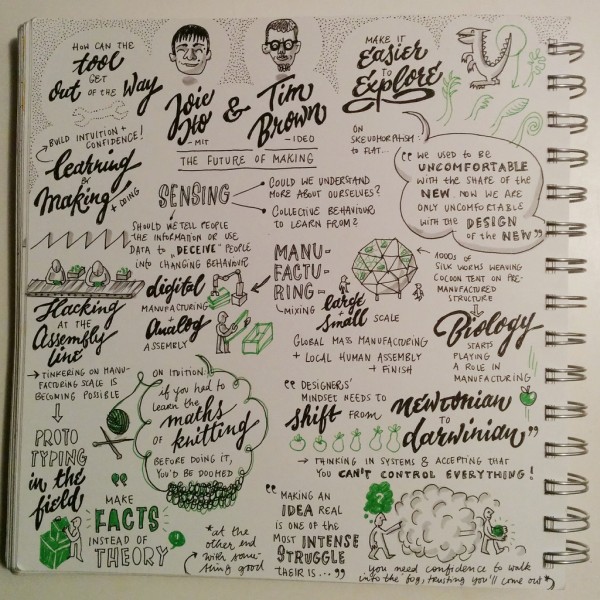 HOW CAN THE
tool
GET
OUT OF THE WAY
Joie
Ito
— MIT
&
Tim
Brown
— IDEO
THE FUTURE OF MAKING
MAKE IT
Easier
TO
Explore
ON
SKEUOMORPHISM
TO FLAT...
"WE USED TO BE
UNCOMFORTABLE
WITH THE SHAPE OF THE
NEW. NOW WE ARE
ONLY UNCOMFORTABLE
WITH THE DESIGN
OF THE NEW"
BUILD INTUITION +
CONFIDENCE!
learning
&
Making + DOING
SENSING
COULD WE UNDERSTAND
MORE ABOUT OURSELVES?
COLLECTIVE BEHAVIOUR
TO LEARN FROM?
SHOULD WE TELL PEOPLE
THE INFORMATION OR USE
DATA TO "DECEIVE" PEOPLE
INTO CHANGING BEHAVIOUR
MANU-
FACTU-
RING-
MIXING large
+ small SCALE
GLOBAL MASS MANUFACTURING
+ LOCAL HUMAN ASSEMBLY
+ FINISH
digital
MANUFACTURING
+
Analog
ASSEMBLY
1000s OF
SILK WORMS WEAVING
COCOON TENT ON PRE-
MANUFACTURED
STRUCTURE
Biology
STARTS
PLAYING
A ROLE IN
MANUFACTURING
Hacking
AT THE
Assembly
line
→ TINKERING ON MANU-
FACTURING SCALE IS
BECOMING POSSIBLE
PROTO
TYPING
in the
field
ON INTUITION:
if you had to
learn the
maths
OF knitting
BEFORE DOING IT,
YOU'D BE DOOMED
"DESIGNERS'
MINDSET NEEDS TO
shift FROM
NEWTONIAN
TO
darwinian"
→ THINKING IN SYSTEMS & ACCEPTING THAT
YOU CAN'T CONTROL EVERYTHING!
"MAKE
FACTS
INSTEAD OF
THEORY"
"MAKING AN
IDEA REAL
IS ONE OF THE
MOST INTENSE
STRUGGLE
THEIR IS..."
?
you need confidence to walk
into the fog, trusting you'll come out*
*at the
other end
with some-
thing good